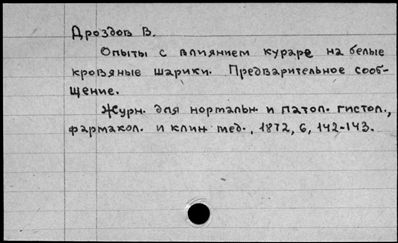 Дроздов В.
Опыты с влиянием кураре на белые
кровяные шарики. Предварительное сооб-
щение.
Журн. для нормальн. и патол. гистол.,
фармакол. и клин. мед., 1872, 6, 142-143.